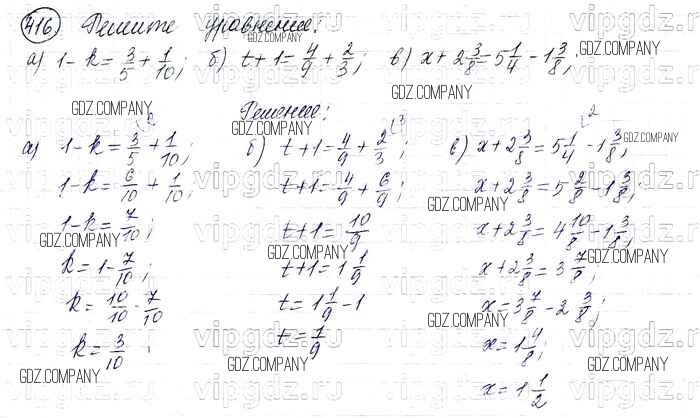 416 Решите уравнение:
а) 1 - k = 3/5 + 1/10; б) t + 1 = 4/9 + 2/3; в) x + 2 3/8 = 5 1/4 - 1 3/8;
Решение:
а) 1 - k = 3/5 + 1/10;
1 - k = 6/10 + 1/10
1 - k = 7/10;
k = 1 - 7/10;
k = 10/10 - 7/10
k = 3/10
б) t + 1 = 4/9 + 2/3;
t + 1 = 4/9 + 6/9;
t + 1 = 10/9
t + 1 = 1 1/9
t = 1 1/9 - 1
t = 1/9
в) x + 2 3/8 = 5 1/4 - 1 3/8;
x + 2 3/8 = 5 2/8 - 1 3/8;
x + 2 3/8 = 4 10/8 - 1 3/8;
x + 2 3/8 = 3 7/8;
x = 3 7/8 - 2 3/8;
x = 1 4/8;
x = 1 1/2
GDZ.COMPANY
vipgdz.ru